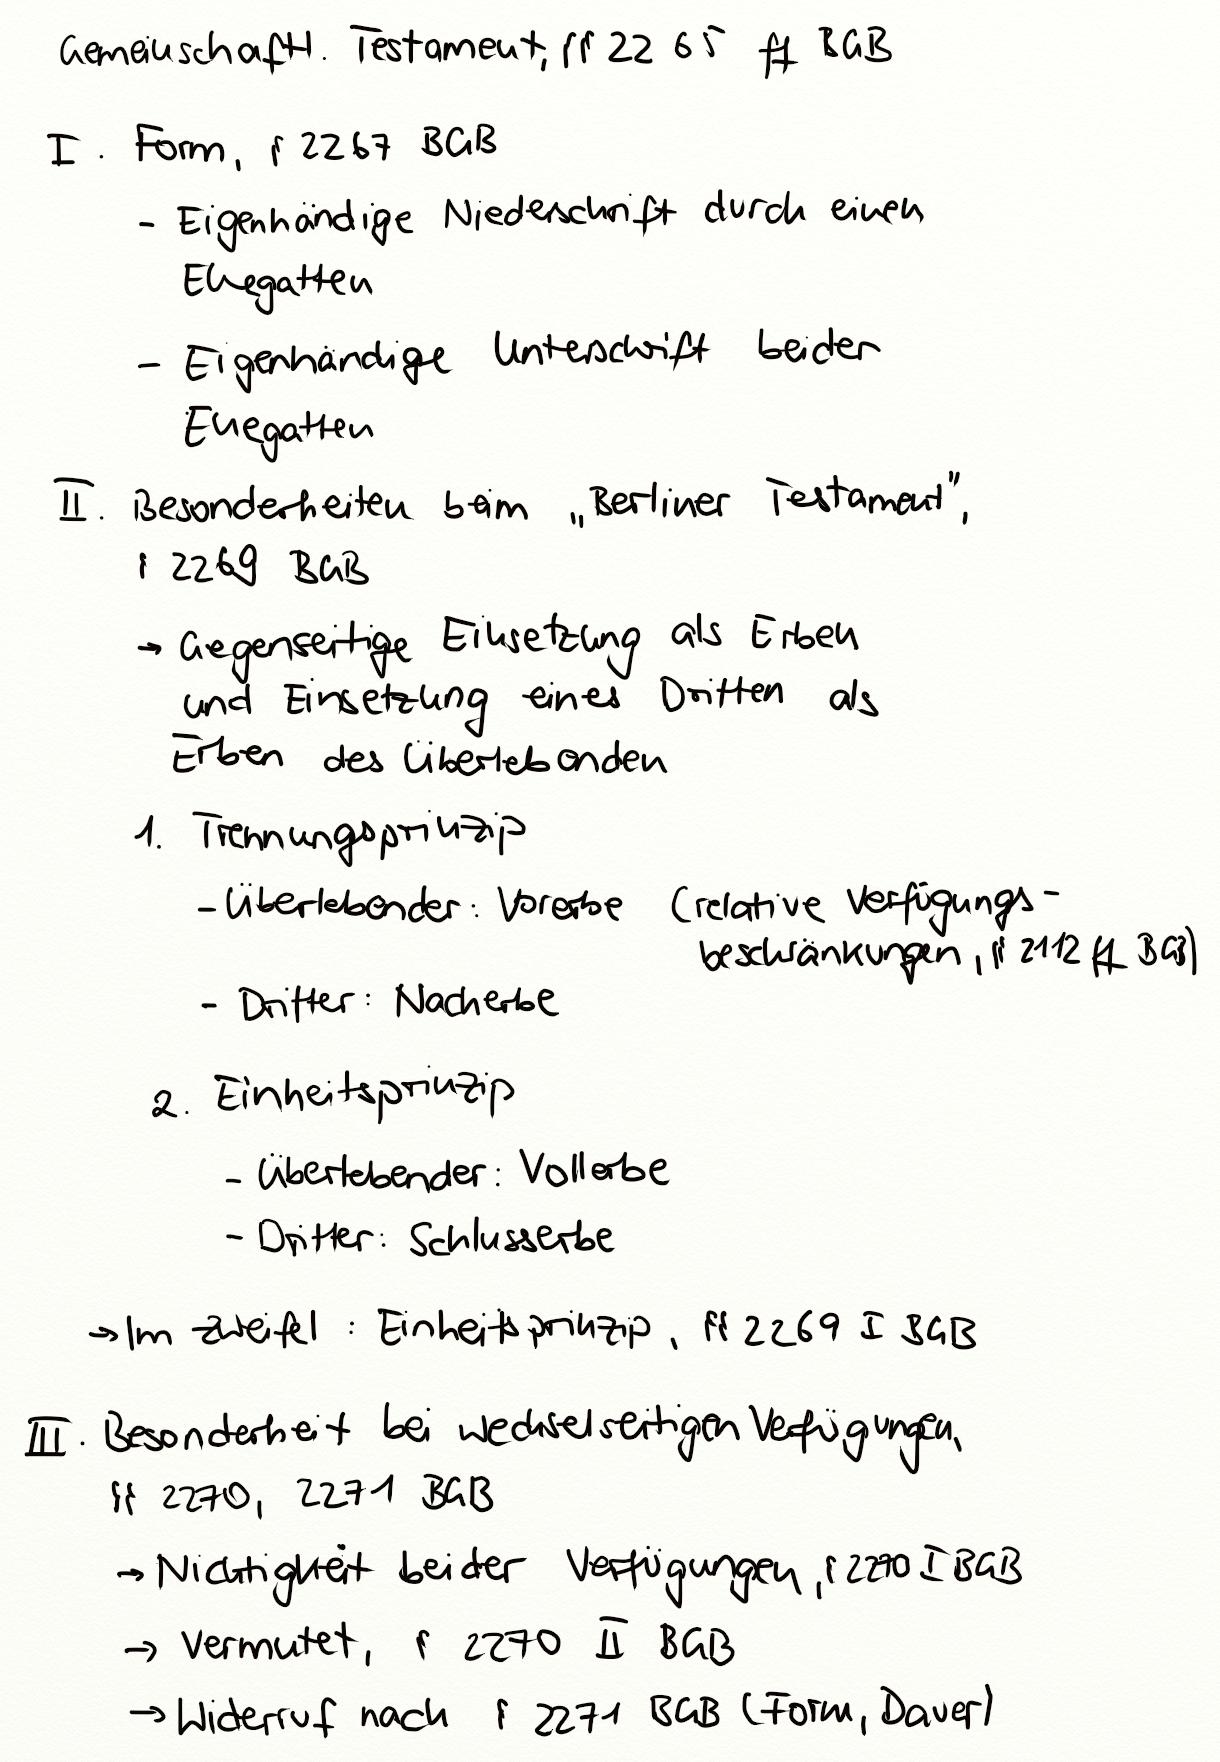 Gemeinschaftl. Testament, §§ 2265 ff BGB
I. Form, § 2267 BGB
- Eigenhändige Niederschrift durch einen
Ehegatten
- Eigenhändige Unterschrift beider
Ehegatten
II. Besonderheiten beim „Berliner Testament",
§ 2269 BGB
→ Gegenseitige Einsetzung als Erben
und Einsetzung eines Dritten als
Erben des Überlebenden
1. Trennungsprinzip
- Überlebender: Vorerbe (relative Verfügungs-
beschränkungen, §§ 2112 ff BGB)
- Dritter: Nacherbe
2. Einheitsprinzip
- Überlebender: Vollerbe
- Dritter: Schlusserbe
→ Im Zweifel: Einheitsprinzip, §§ 2269 I BGB
III. Besonderheit bei wechselseitigen Verfügungen,
§§ 2270, 2271 BGB
→ Nichtigkeit beider Verfügungen, § 2270 I BGB
→ Vermutet, § 2270 II BGB
→ Widerruf nach § 2271 BGB (Form, Dauer)